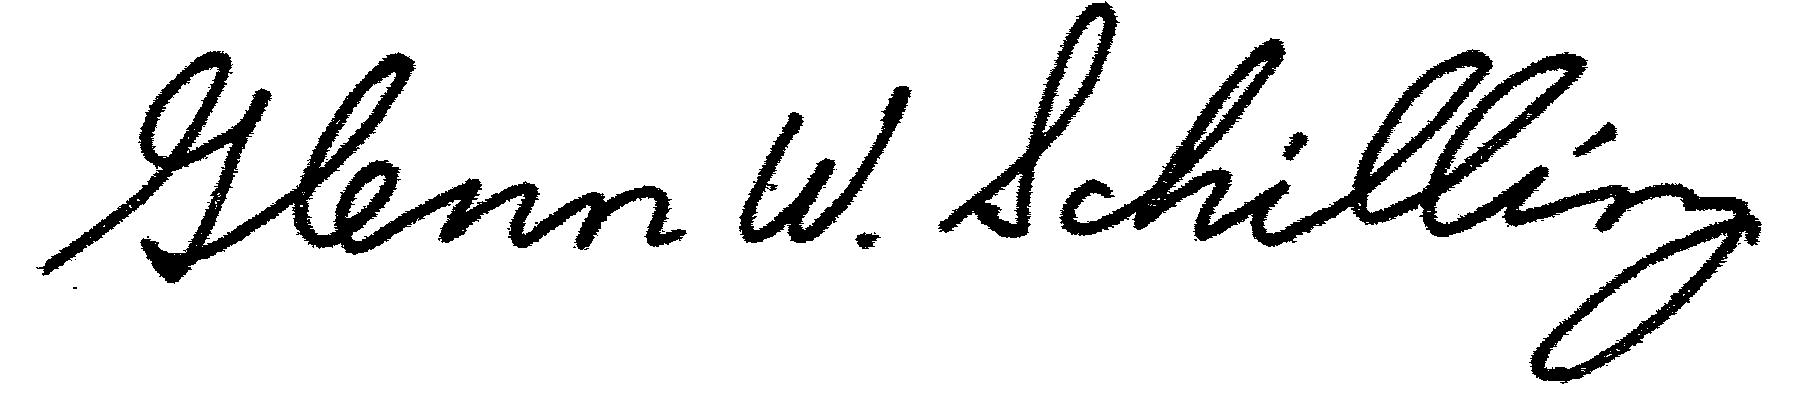 Glenn W. Schilling